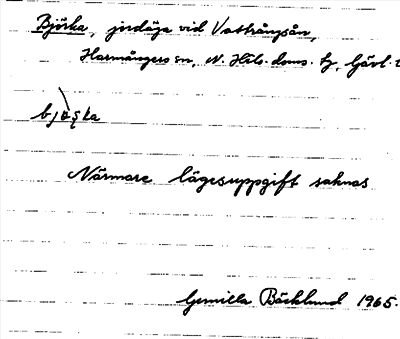 Björka, jordäga vid Vattrångsån,
Harmångers sn, N. Häls. doms. tg, Gävl.
bjærka
Närmare lägesuppgift saknas
Gunilla Bäcklund 1965.